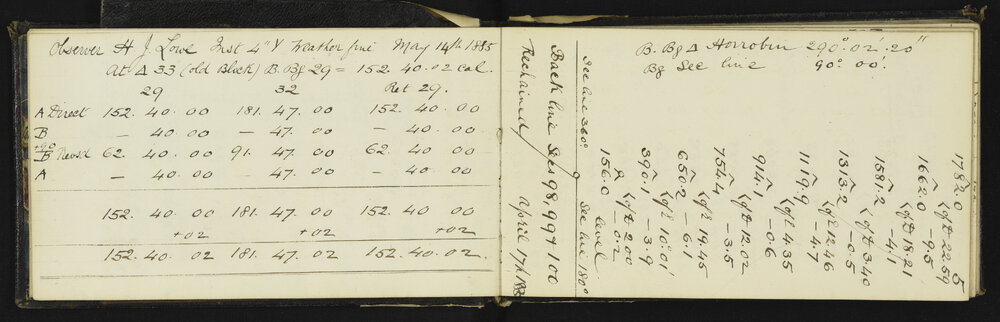 Observer H. J. Lowe Inst 4" Y Weather fine May 14th 1885
At Δ 33 (old Block) B. Bg 29 = 152. 40. 02 cal.
29 32 Ret 29.
A Direct 152. 40. 00 181. 47. 00 152. 40. 00
B — 40. 00 — 47. 00 — 40. 00
+90
B Revs'd 62. 40. 00 91. 47. 00 62. 40. 00
A — 40. 00 — 47. 00 — 40. 00
152. 40. 00 181. 47. 00 152. 40. 00
+02 +02 +02
152. 40. 02 181. 47. 02 152. 40. 02.
B. Bg Δ Horrobin 290°. 02'. 20"
Bg Sec line 90°. 00'.
Rechained April 17th
Back line Secs 98, 99 & 100
Sec line 360° Sec line 180°
156.0 level
390.1 2.00 — 0.2
650.2 10.01 — 3.9
754.4 19.45 — 6.1
914.1 12.02 — 3.5
1119.9 4.35 — 0.6
1313.2 12.46 — 4.7
1581.2 3.40 — 0.5
1662.0 18.21 — 4.1
1782.0 22.59 — 9.5
5